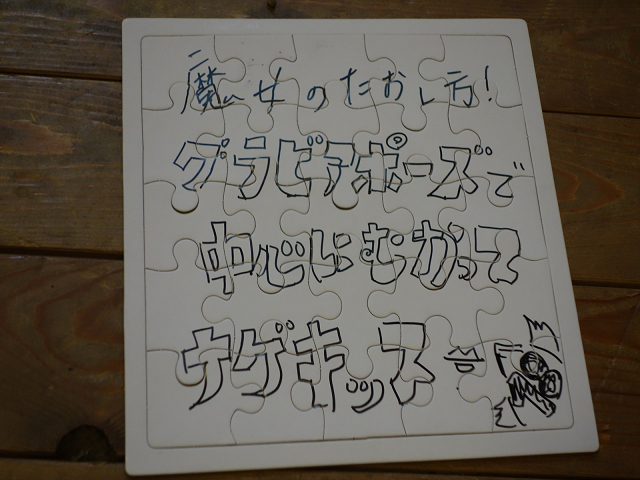 魔女のたおし方!
グラビアポーズで
中心にむかって
ウゲキッス